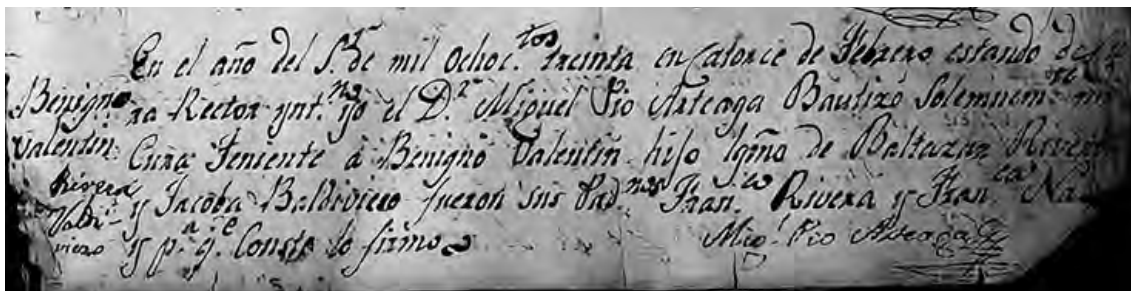 En el año del S.r de mil Ochoc.tos treinta en Catorce de Febrero estando de
Benigno ra Rector ynt.no yo el D.r Miguel Pio Arteaga Bautizó Solemnem.te mi
Valentin Cura Teniente à Benigno Valentin hijo lgmo de Baltazar River
Rivera y Jacoba Baldivieso fueron sus Pad.nos Fran.co Rivera y Fran.ca Na
Valdi
viero y p.a q.e Conste lo firmo
Mig.l Pio Arteaga